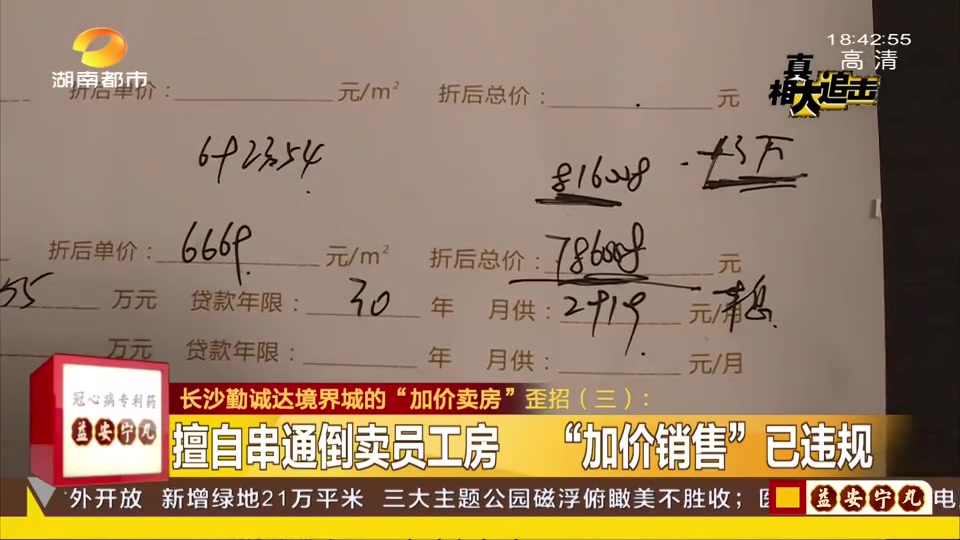 18:42:55
高清
湖南都市
真相大追击
折后单价： 元/m² 折后总价： 元
692354
816008 -+3万
折后单价：6669 元/m² 折后总价：786008 元
55 万元 贷款年限：30 年 月供：2919 元/月
万元 贷款年限： 年 月供： 元/月
冠心病专利药
益安宁丸
长沙勤诚达境界城的“加价卖房”歪招（三）：
擅自串通倒卖员工房 “加价销售”已违规
外开放 新增绿地21万平米 三大主题公园磁浮俯瞰美不胜收；
益安宁丸
电